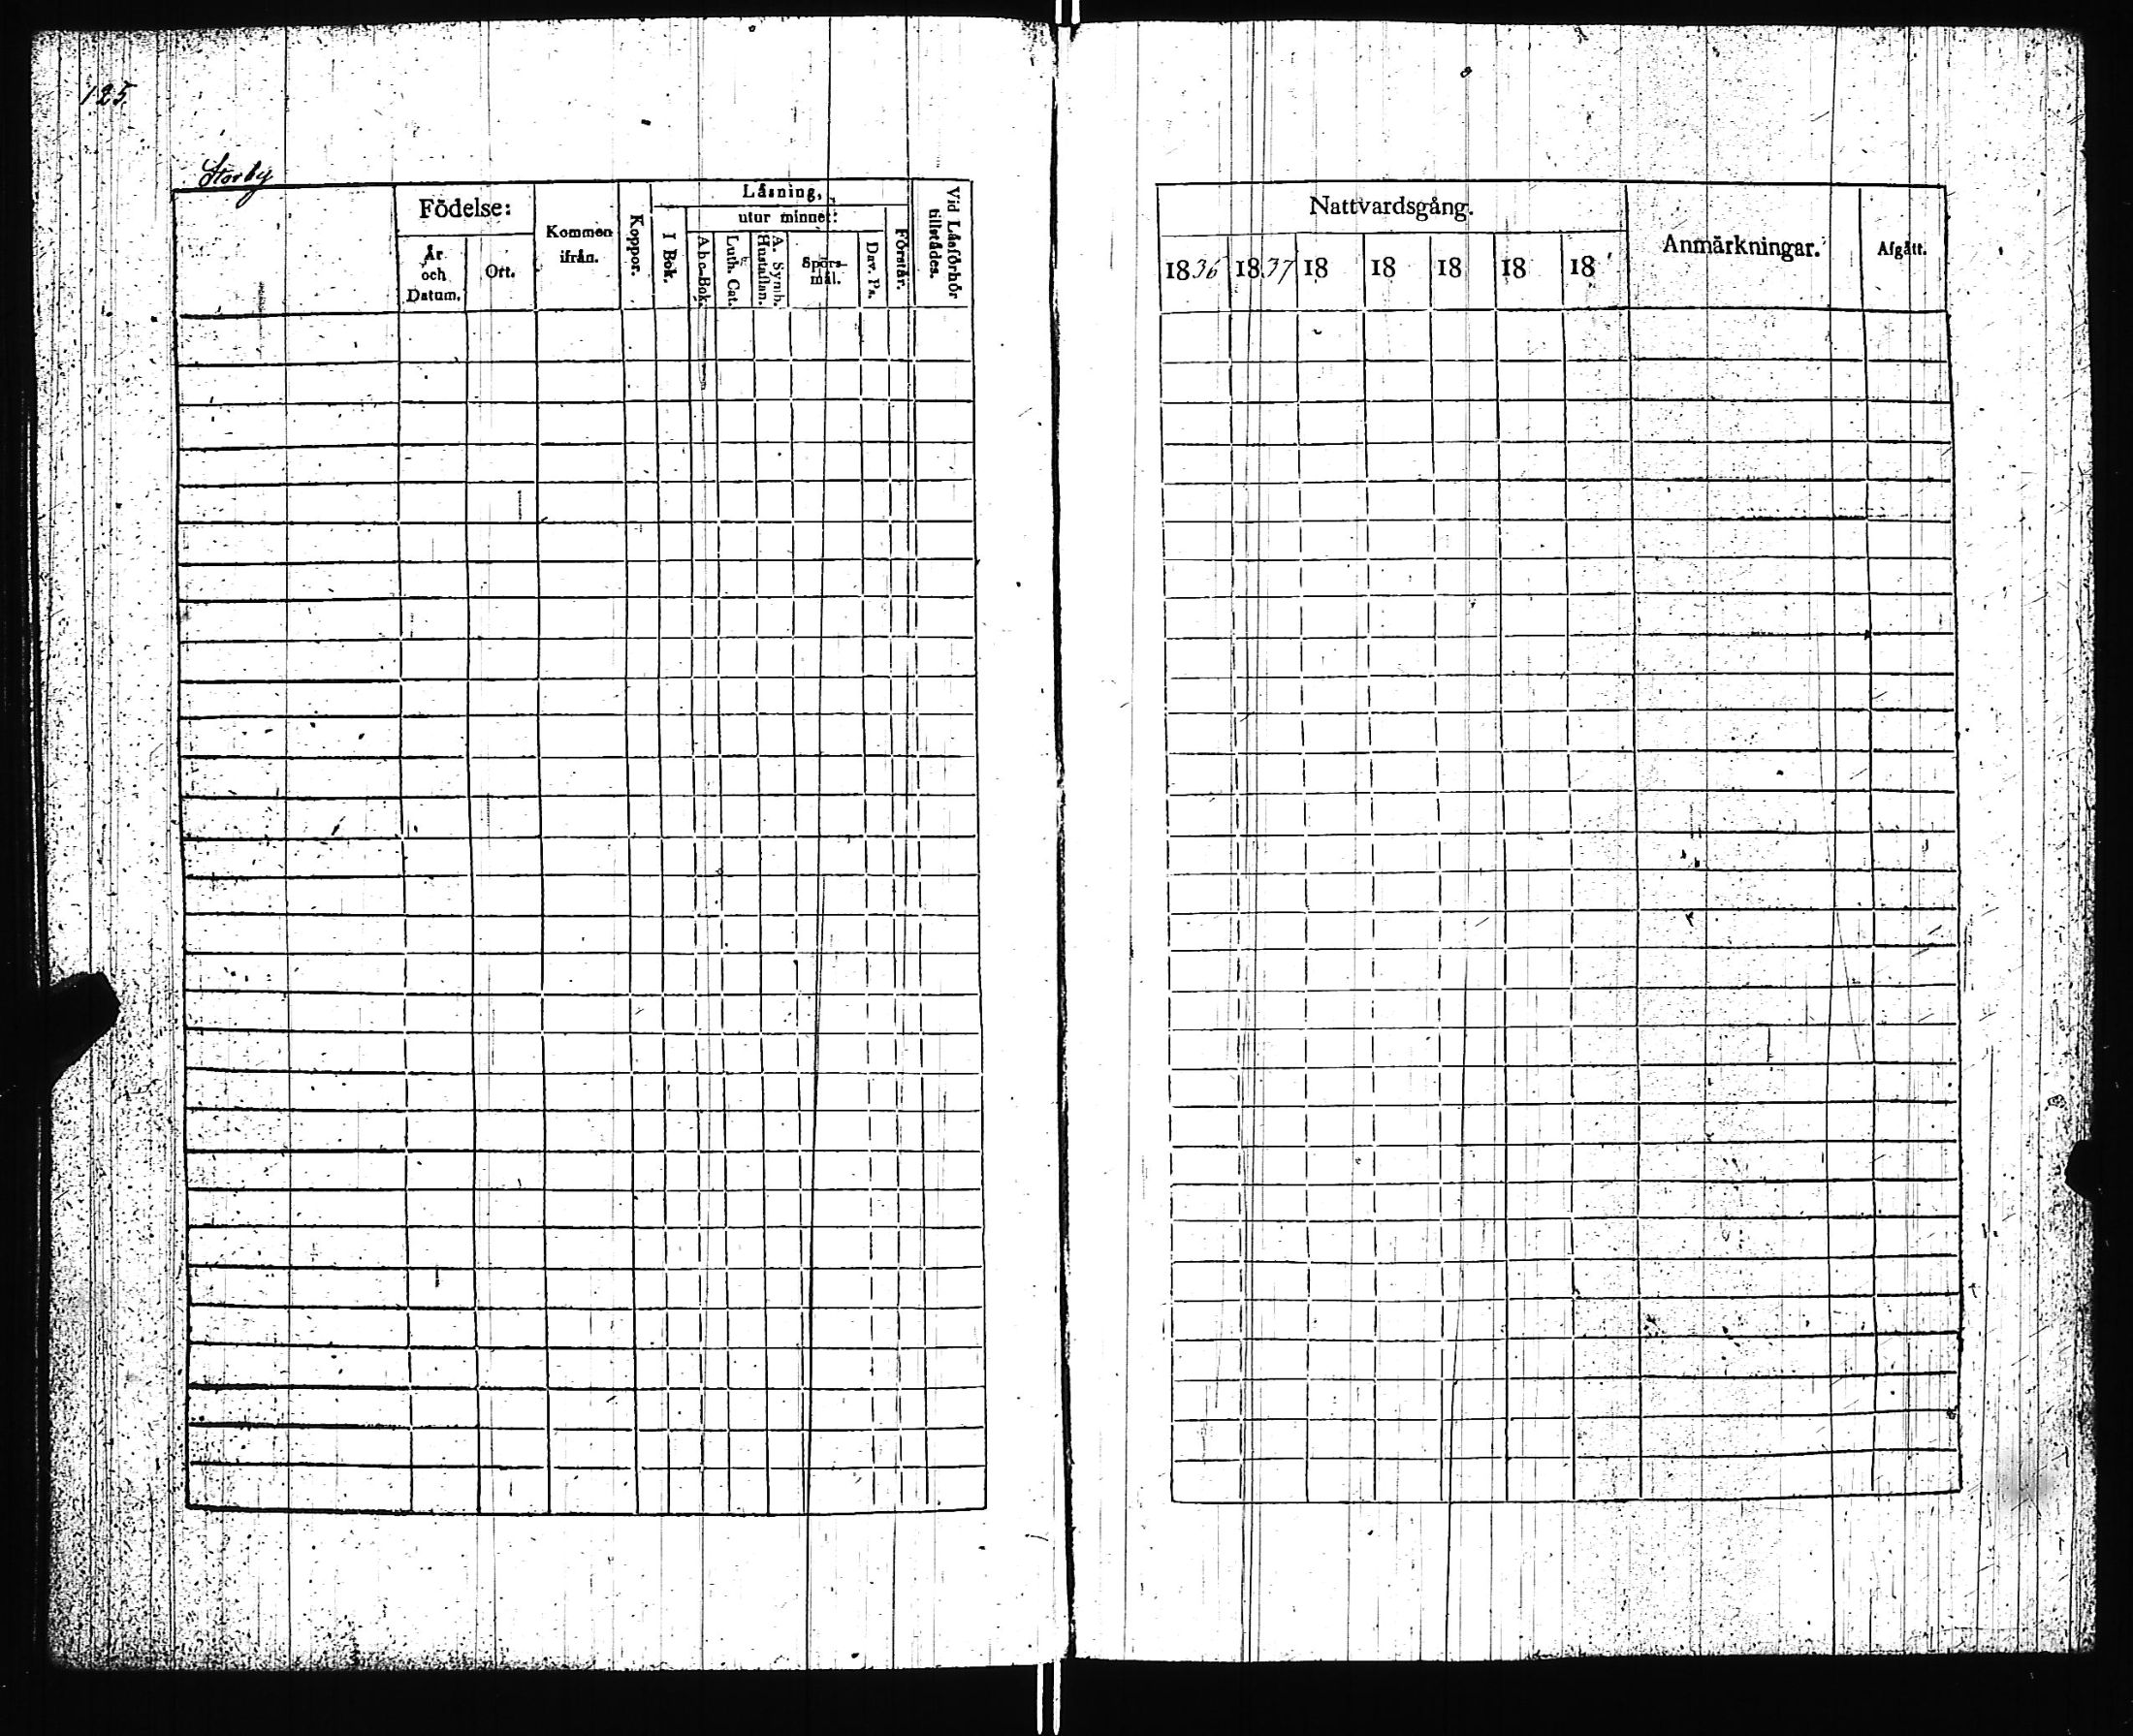 125.
Storby
Födelse:
År och Datum.
Ort.
Kommen ifrån.
Koppor.
Läsning,
I Bok.
utur minnet:
A.b.c-Bok.
Luth. Cat.
A. Symb. Hustaflan.
Spörsmål.
Dav. Ps.
Förstår.
Vid Läsförhör tillstädes.
Nattvardsgång.
1836
1837
18
18
18
18
18
Anmärkningar.
Afgått.